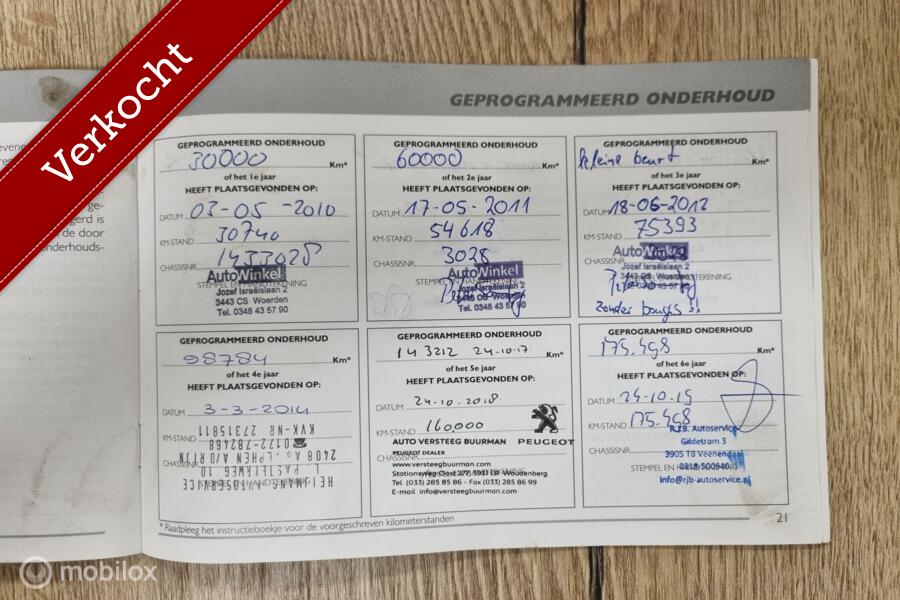 Verkocht
GEPROGRAMMEERD ONDERHOUD
GEPROGRAMMEERD ONDERHOUD
30000 Km*
of het 1e jaar
HEEFT PLAATSGEVONDEN OP:
DATUM 03-05-2010
KM-STAND 30740
CHASSISNR 1433028
STEMPEL EN HANDTEKENING
AutoWinkel
Jozef Israëlslaan 2
3443 CS Woerden
Tel. 0348 43 57 90
GEPROGRAMMEERD ONDERHOUD
60000 Km*
of het 2e jaar
HEEFT PLAATSGEVONDEN OP:
DATUM 17-05-2011
KM-STAND 54618
CHASSISNR 3028
AutoWinkel
Jozef Israëlslaan 2
3443 CS Woerden
Tel. 0348 43 57 90
GEPROGRAMMEERD ONDERHOUD
kleine beurt Km*
of het 3e jaar
HEEFT PLAATSGEVONDEN OP:
DATUM 18-06-2012
KM-STAND 75393
CHASSISNR
AutoWinkel
Jozef Israëlslaan 2
3443 CS Woerden
zonder bougies!!
GEPROGRAMMEERD ONDERHOUD
98784 Km*
of het 4e jaar
HEEFT PLAATSGEVONDEN OP:
DATUM 3-3-2014
KM-STAND
CHASSISNR
STEMPEL EN HANDTEKENING
HEIJMANN AUTOSERVICE
PASTELWEG 10
2408 A/D RIJN
0172-782468
KVK-NR 27315811
GEPROGRAMMEERD ONDERHOUD
143212 24-10-17 Km*
of het 5e jaar
HEEFT PLAATSGEVONDEN OP:
DATUM 24-10-2018
KM-STAND 160.000
PEUGEOT
AUTO VERSTEEG BUURMAN
PEUGEOT DEALER
CHASSISNR
www.versteegbuurman.com
Stationsweg Oost 277, 3931 ER Woudenberg
Tel (033) 285 85 86 - Fax (033) 285 86 99
E-mail info@versteegbuurman.com
GEPROGRAMMEERD ONDERHOUD
175.498 Km*
of het 6e jaar
HEEFT PLAATSGEVONDEN OP:
DATUM 24-10-19
KM-STAND 175.498
R.J.B. Autoservice
Gildetrom 3
CHASSISNR
3905 TB Veenendaal
STEMPEL EN HANDTEKENING
0318 500940
info@rjb-autoservice.nl
* Raadpleeg het instructieboekje voor de voorgeschreven kilometerstanden
21
gerd is
de door
onderhouds-
mobilox